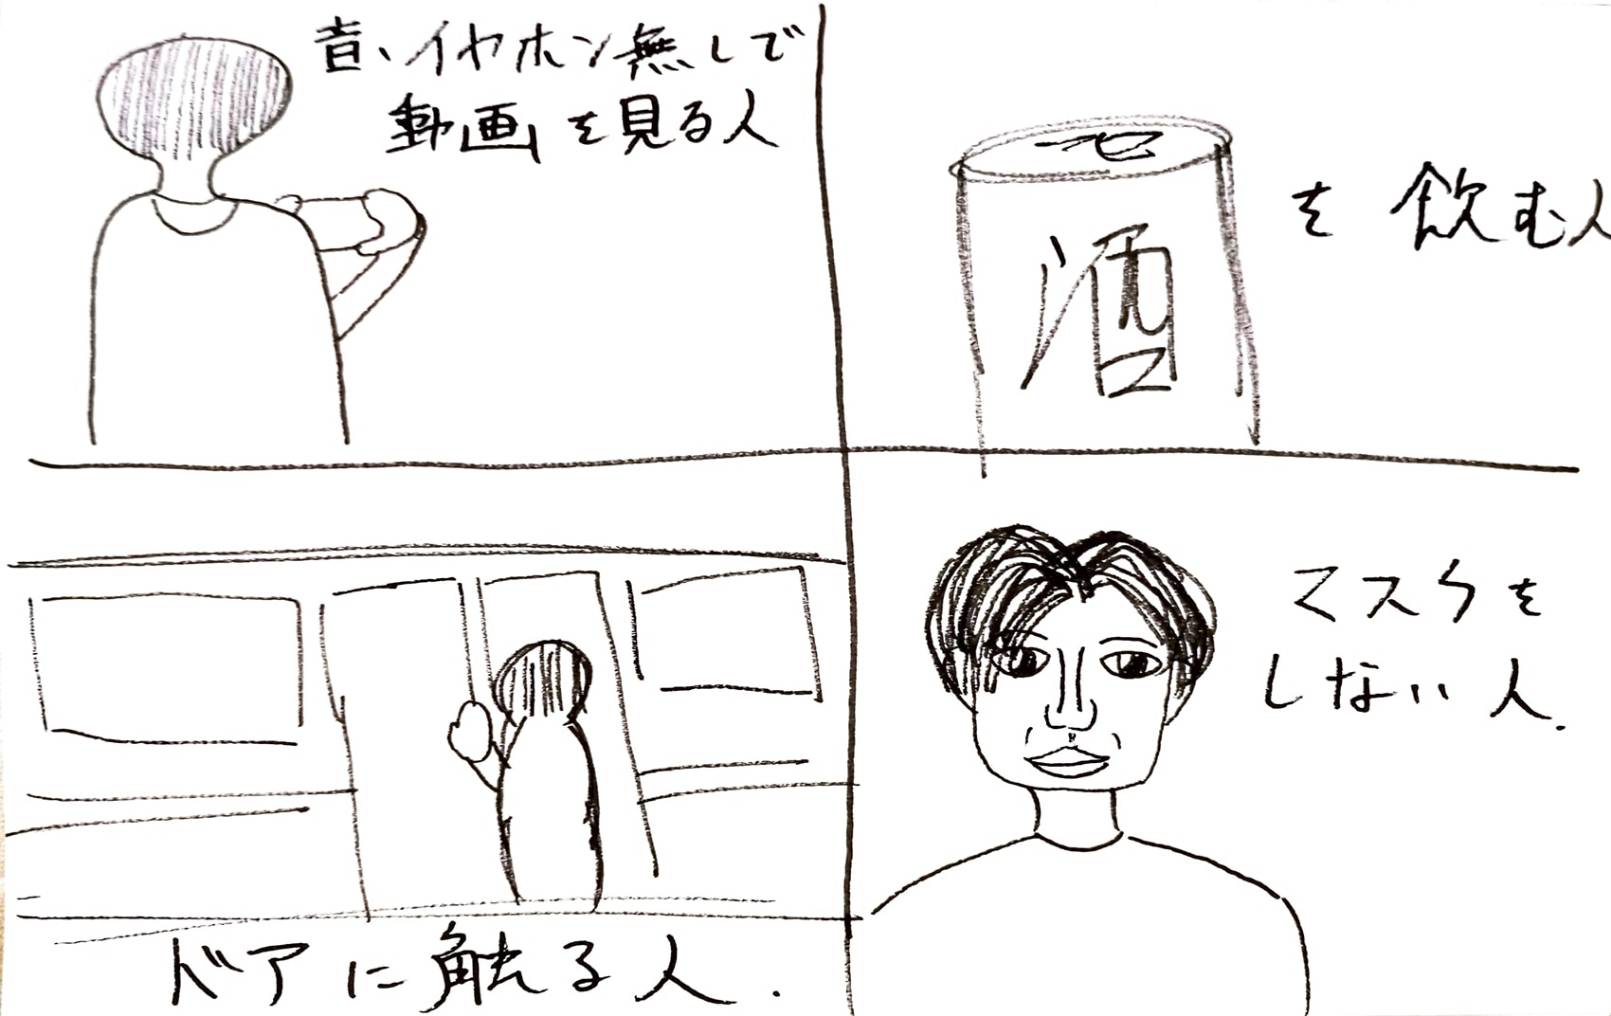 音、イヤホン無しで
動画を見る人
酒
を飲む人
ドアに触る人.
マスクを
しない人.